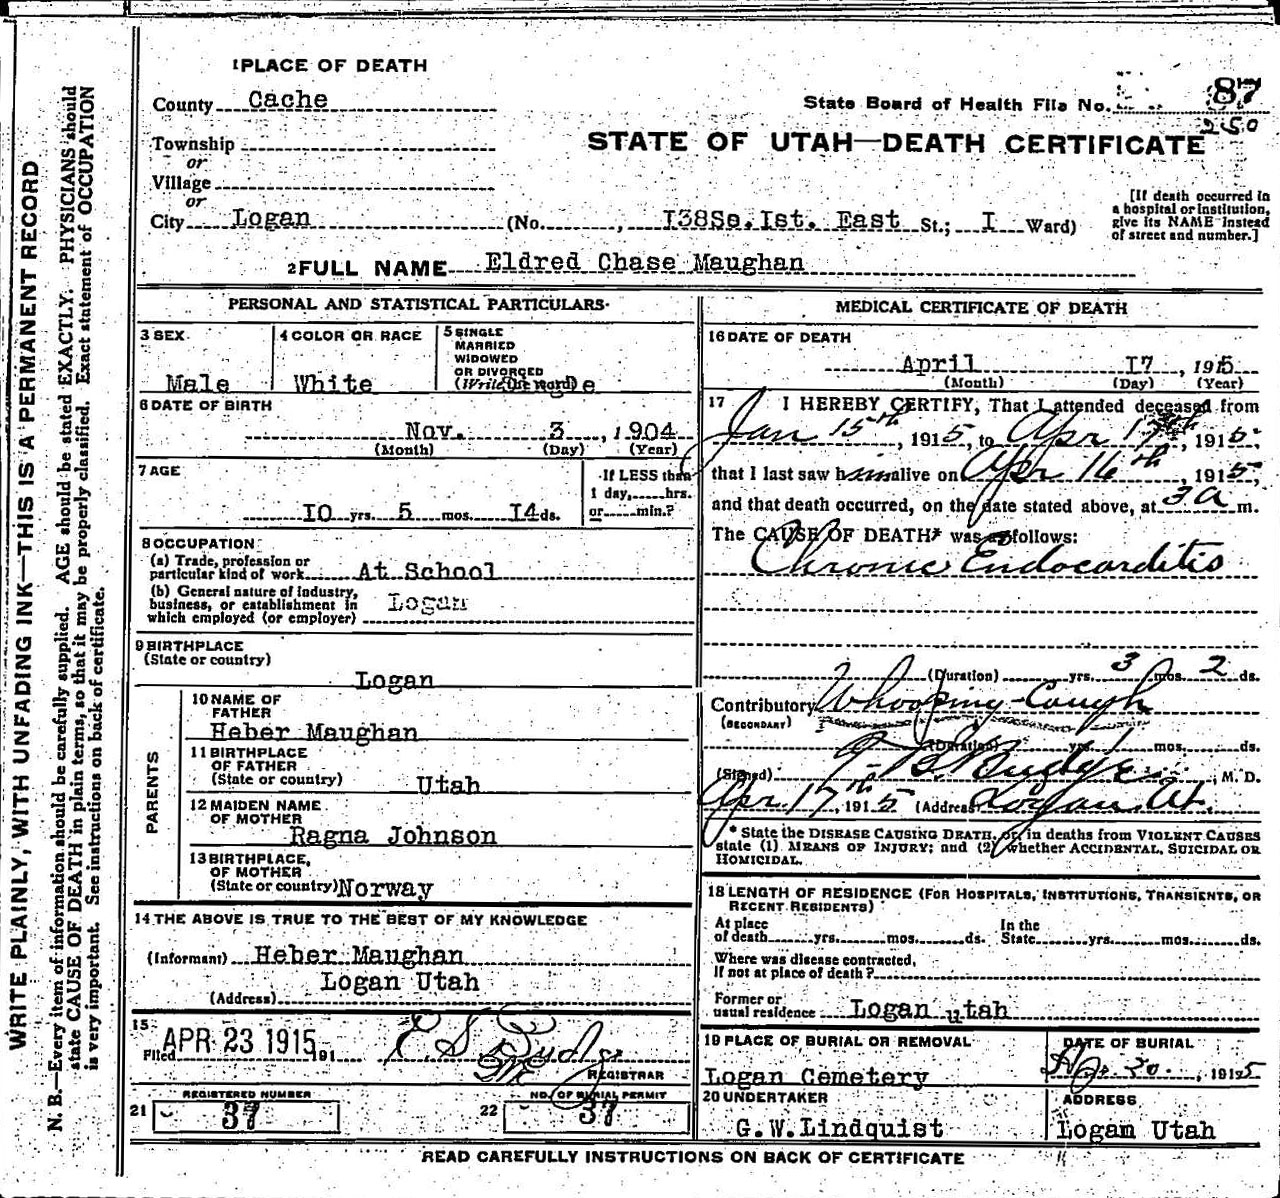 1 PLACE OF DEATH
County Cache
State Board of Health File No. 87
250
STATE OF UTAH—DEATH CERTIFICATE
Township
or
Village
or
City Logan (No. , 138So.Ist. East St.; I Ward)
[If death occurred in
a hospital or institution,
give its NAME instead
of street and number.]
2 FULL NAME Eldred Chase Maughan
WRITE PLAINLY, WITH UNFADING INK—THIS IS A PERMANENT RECORD
N. B.—Every item of information should be carefully supplied. AGE should be stated EXACTLY. PHYSICIANS should
state CAUSE OF DEATH in plain terms, so that it may be properly classified. Exact statement of OCCUPATION
is very important. See instructions on back of certificate.
PERSONAL AND STATISTICAL PARTICULARS
3 SEX
Male
4 COLOR OR RACE
White
5 SINGLE
MARRIED
WIDOWED
OR DIVORCED
(Write the word)
6 DATE OF BIRTH
Nov. 3 , 1904
(Month) (Day) (Year)
7 AGE
10 yrs. 5 mos. 14 ds.
If LESS than
1 day,......hrs.
or......min.?
8 OCCUPATION
(a) Trade, profession or
particular kind of work At School
(b) General nature of industry,
business, or establishment in
which employed (or employer) Logan
9 BIRTHPLACE
(State or country)
Logan
PARENTS
10 NAME OF
FATHER
Heber Maughan
11 BIRTHPLACE
OF FATHER
(State or country) Utah
12 MAIDEN NAME
OF MOTHER
Ragna Johnson
13 BIRTHPLACE,
OF MOTHER
(State or country) Norway
14 THE ABOVE IS TRUE TO THE BEST OF MY KNOWLEDGE
(Informant) Heber Maughan
Logan Utah
(Address)
15
Filed APR 23 1915 191
REGISTRAR
REGISTERED NUMBER
21 37
NO. OF BURIAL PERMIT
22 37
MEDICAL CERTIFICATE OF DEATH
16 DATE OF DEATH
April 17 , 1915
(Month) (Day) (Year)
17 I HEREBY CERTIFY, That I attended deceased from
Jan 15th, 1915, to Apr 17th, 1915,
that I last saw him alive on Apr 16th, 1915,
and that death occurred, on the date stated above, at 3 a m.
The CAUSE OF DEATH* was as follows:
Chronic Endocarditis
(Duration) yrs. 3 mos. 2 ds.
Contributory Whooping-Cough
(SECONDARY)
(Duration) yrs. 1 mos. ds.
(Signed) M. D.
Apr 17th, 1915 (Address) Logan Ut.
* State the DISEASE CAUSING DEATH, or, in deaths from VIOLENT CAUSES
state (1) MEANS OF INJURY; and (2) whether ACCIDENTAL, SUICIDAL OR
HOMICIDAL.
18 LENGTH OF RESIDENCE (FOR HOSPITALS, INSTITUTIONS, TRANSIENTS, OR
RECENT RESIDENTS)
At place
of death yrs. mos. ds.
In the
State yrs. mos. ds.
Where was disease contracted,
If not at place of death?
Former or
usual residence Logan utah
19 PLACE OF BURIAL OR REMOVAL
Logan Cemetery
DATE OF BURIAL
Ap. 20. , 1915
20 UNDERTAKER
G.W.Lindquist
ADDRESS
Logan Utah
READ CAREFULLY INSTRUCTIONS ON BACK OF CERTIFICATE